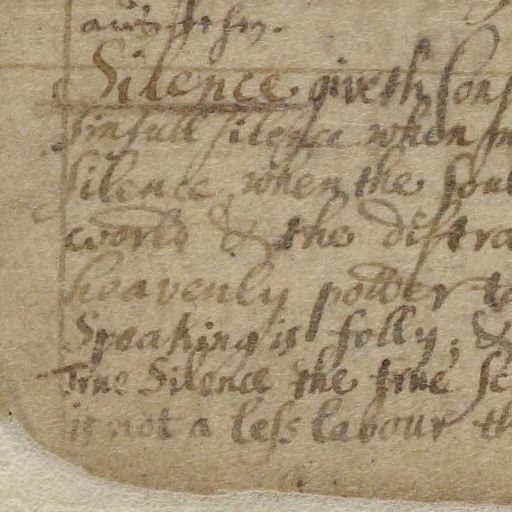 Silence giveth cons
sinfull silence when m
silence, when the soul
world & the distra
heavenly power to
Speaking is folly, &
True Silence the true sc
is not a less labour th